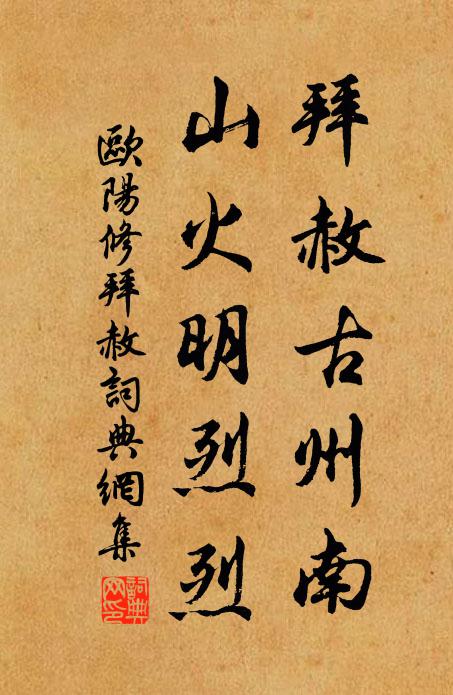 拜赦古州南
山火明烈烈
歐陽修拜赦詞典網集
詞典網印